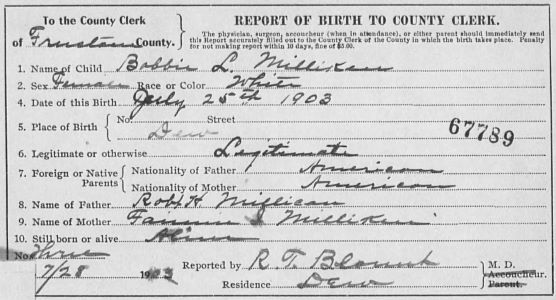 To the County Clerk
of Freestone County.
REPORT OF BIRTH TO COUNTY CLERK.
The physician, surgeon, accoucheur (when in attendance), or either parent should immediately send
this Report accurately filled out to the County Clerk of the County in which the birth takes place. Penalty
for not making report within 10 days, fine of $5.00.
1. Name of Child Bobbie L. Millikan
2. Sex Female Race or Color White
4. Date of this Birth July 25th 1903
5. Place of Birth No. Street
Dew
67789
6. Legitimate or otherwise Legitimate
7. Foreign or Native Parents Nationality of Father American
Nationality of Mother American
8. Name of Father Robt. H. Millican
9. Name of Mother Fannie Milliken
10. Still born or alive Alive
No. Three
7/28 1903
Reported by R. T. Blount M. D.
Accoucheur.
Residence Dew Parent.